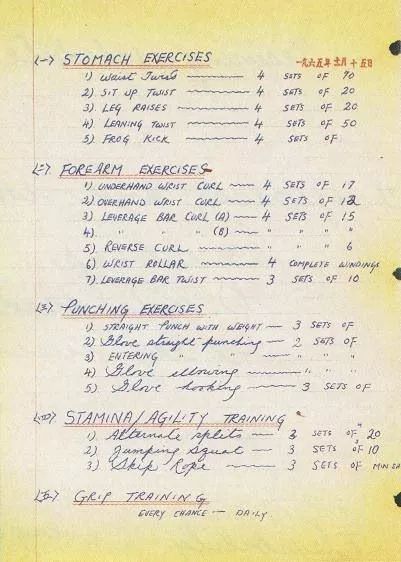 (一) STOMACH EXERCISES 一九六五年 十五日
1) Waist Twist — 4 SETS OF 70
2) SIT UP TWIST — 4 SETS OF 20
3) LEG RAISES — 4 SETS OF 20
4) LEANING TWIST — 4 SETS OF 50
5) FROG KICK — 4 SETS OF
(二) FOREARM EXERCISES
1) UNDERHAND WRIST CURL — 4 SETS OF 17
2) OVERHAND WRIST CURL — 4 SETS OF 12
3) LEVERAGE BAR CURL (A) — 4 SETS OF 15
4) " " " (B) — " " " "
5) REVERSE CURL — " " " 6
6) WRIST ROLLAR — 4 COMPLETE WINDINGS
7) LEVERAGE BAR TWIST — 3 SETS OF 10
(三) PUNCHING EXERCISES
1) STRAIGHT PUNCH WITH WEIGHT — 3 SETS OF
2) Glove straight punching — 2 SETS OF
3) ENTERING " " — " " "
4) Glove elbowing — " " "
5) Glove hooking — 3 SETS OF
(四) STAMINA/AGILITY TRAINING
1) Alternate splits — 3 SETS OF 20
2) Jumping Squat — 3 SETS OF 10
3) Skip Rope — 3 SETS OF
(五) GRIP TRAINING
EVERY CHANCE — DAILY.